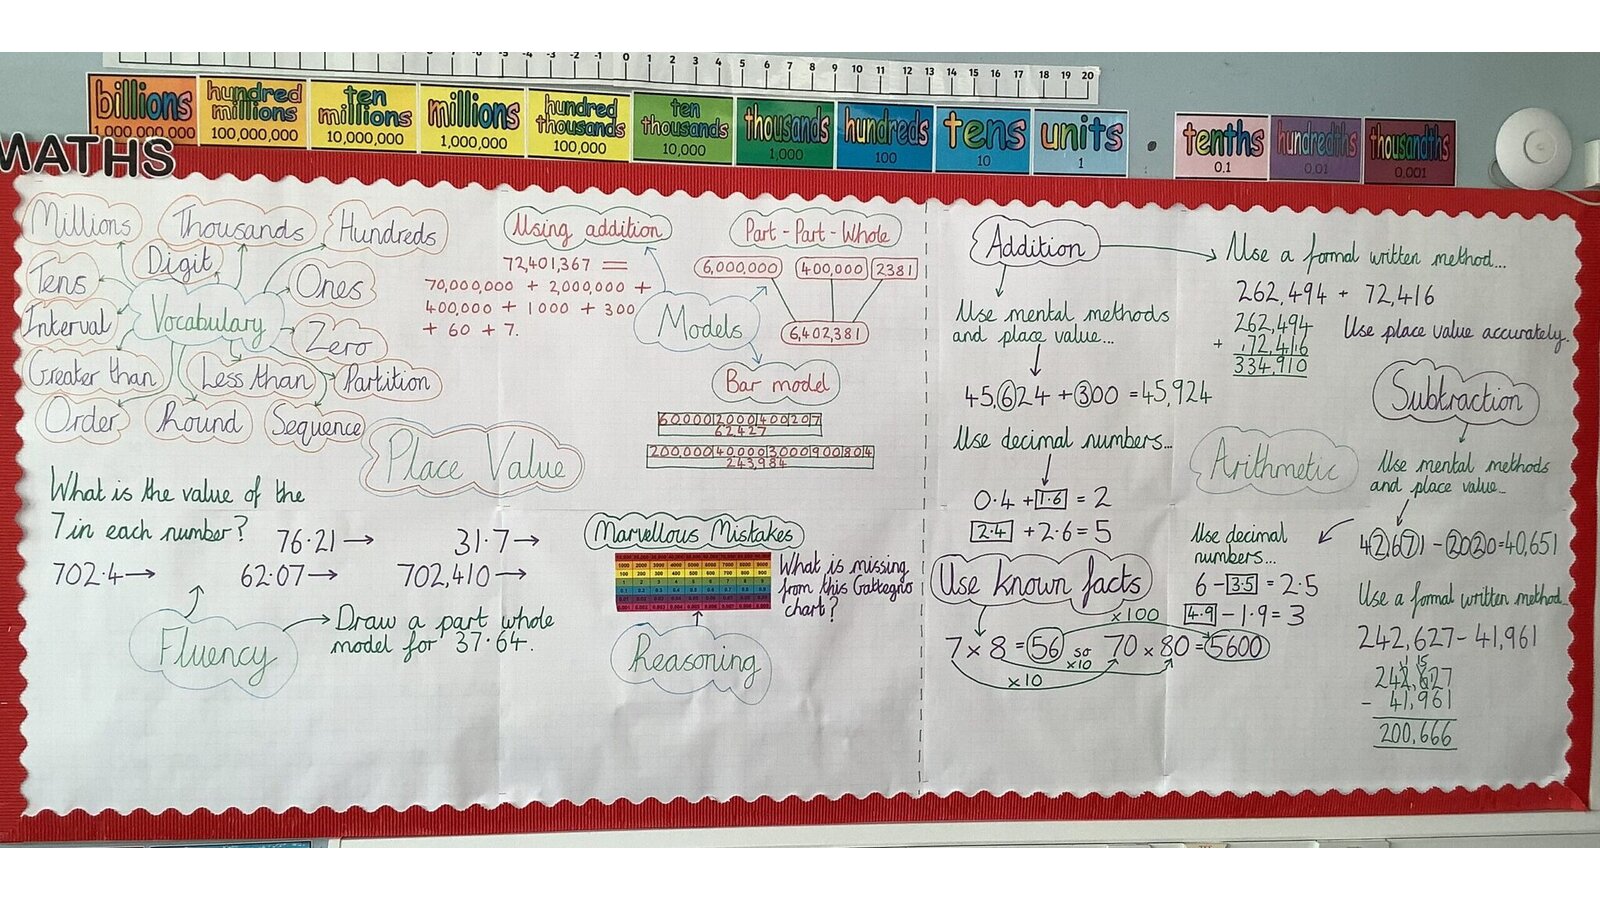 -3 -2 -1 0 1 2 3 4 5 6 7 8 9 10 11 12 13 14 15 16 17 18 19 20
billions
1,000,000,000
hundred millions
100,000,000
ten millions
10,000,000
millions
1,000,000
hundred thousands
100,000
ten thousands
10,000
thousands
1,000
hundreds
100
tens
10
units
1
tenths
0.1
hundredths
0.01
thousandths
0.001
MATHS
Millions
Thousands
Hundreds
Tens
Digit
Ones
Interval
Vocabulary
Zero
Greater than
Less than
Partition
Order
Round
Sequence
Place Value
Using addition
72,401,367 =
70,000,000 + 2000,000 +
400,000 + 1000 + 300
+ 60 + 7.
Part-Part-Whole
6,000,000 400,000 2381
6,402,381
Models
Bar model
60000 2000 400 20 7
62,427
200,000 40000 3000 900 80 4
243,984
What is the value of the
7 in each number?
76.21 →
31.7 →
702.4 →
62.07 →
702,410 →
Fluency
Draw a part whole
model for 37.64.
Marvellous Mistakes
1000 2000 3000 4000 5000 6000 7000 8000 9000
100 200 300 400 500 600 700 800 900
What is missing
from this Gattegno
chart?
Reasoning
Addition
Use mental methods
and place value...
45,624 + 300 = 45,924
Use decimal numbers...
0.4 + 1.6 = 2
2.4 + 2.6 = 5
Use known facts
7 × 8 = 56 so 70 × 80 = 5600
×100
×10
×10
Use a formal written method...
262,494 + 72,416
262,494
+ 72,416
334,910
Use place value accurately.
Arithmetic
Subtraction
Use mental methods
and place value...
42,671 - 2020 = 40,651
Use decimal
numbers...
6 - 3.5 = 2.5
4.9 - 1.9 = 3
Use a formal written method...
242,627 - 41,961
242,627
- 41,961
200,666